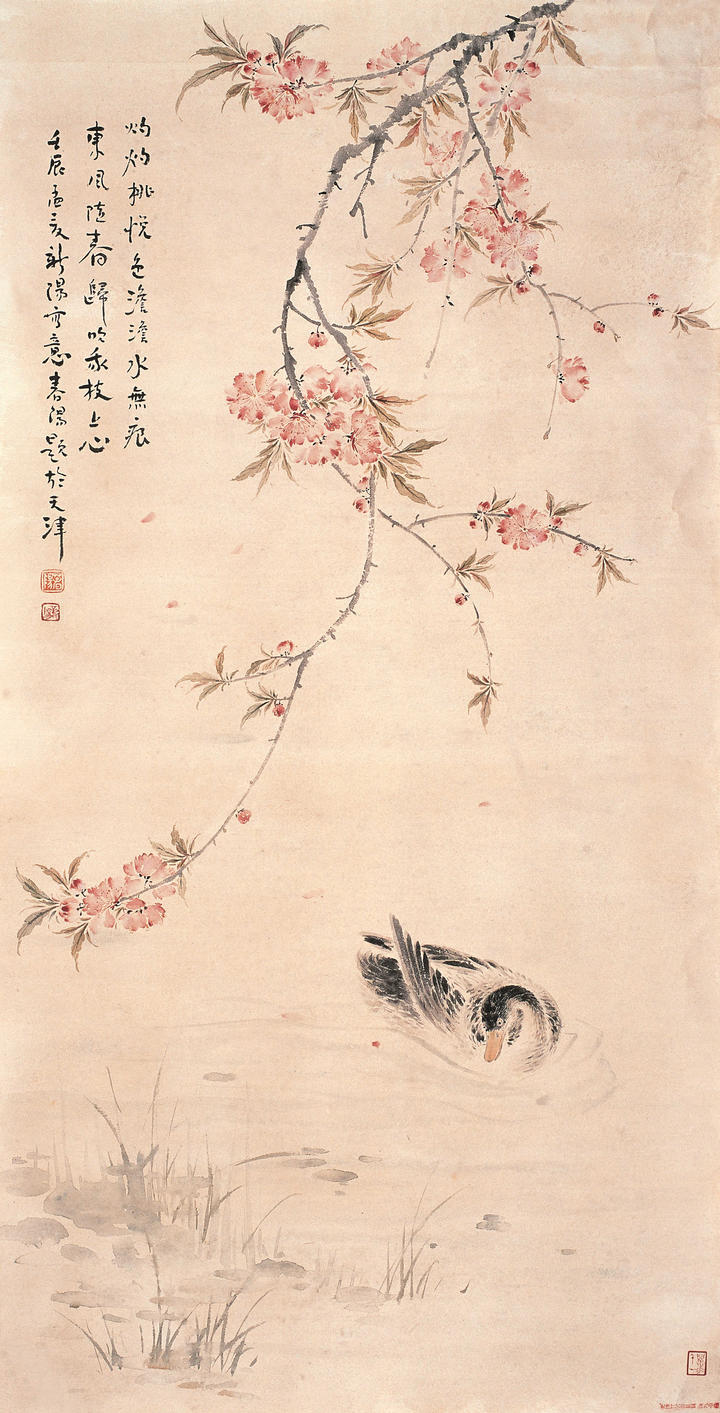 灼灼桃悦色澹澹水無痕
東風隨春歸吹我枝上心
壬辰孟夏新陽寫意春陽題於天津